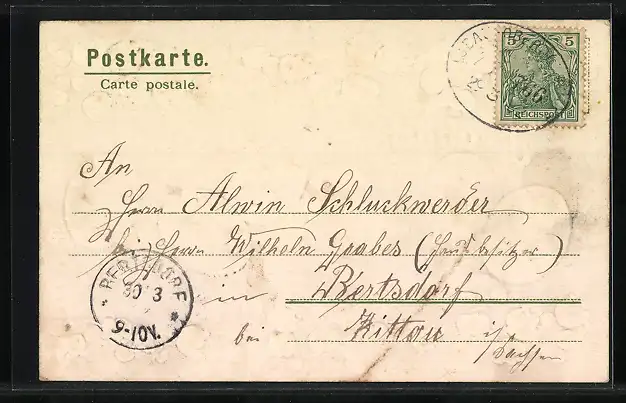 Postkarte.
Carte postale.
5 5
REICHSPOST
An
Herrn Alwin Schluckwerder
bei Herrn Wilhelm Grabes (Hausbesitzer)
in Bertsdorf
bei Zittau i/Sachsen
BERTSDORF
30 3
9-10V.